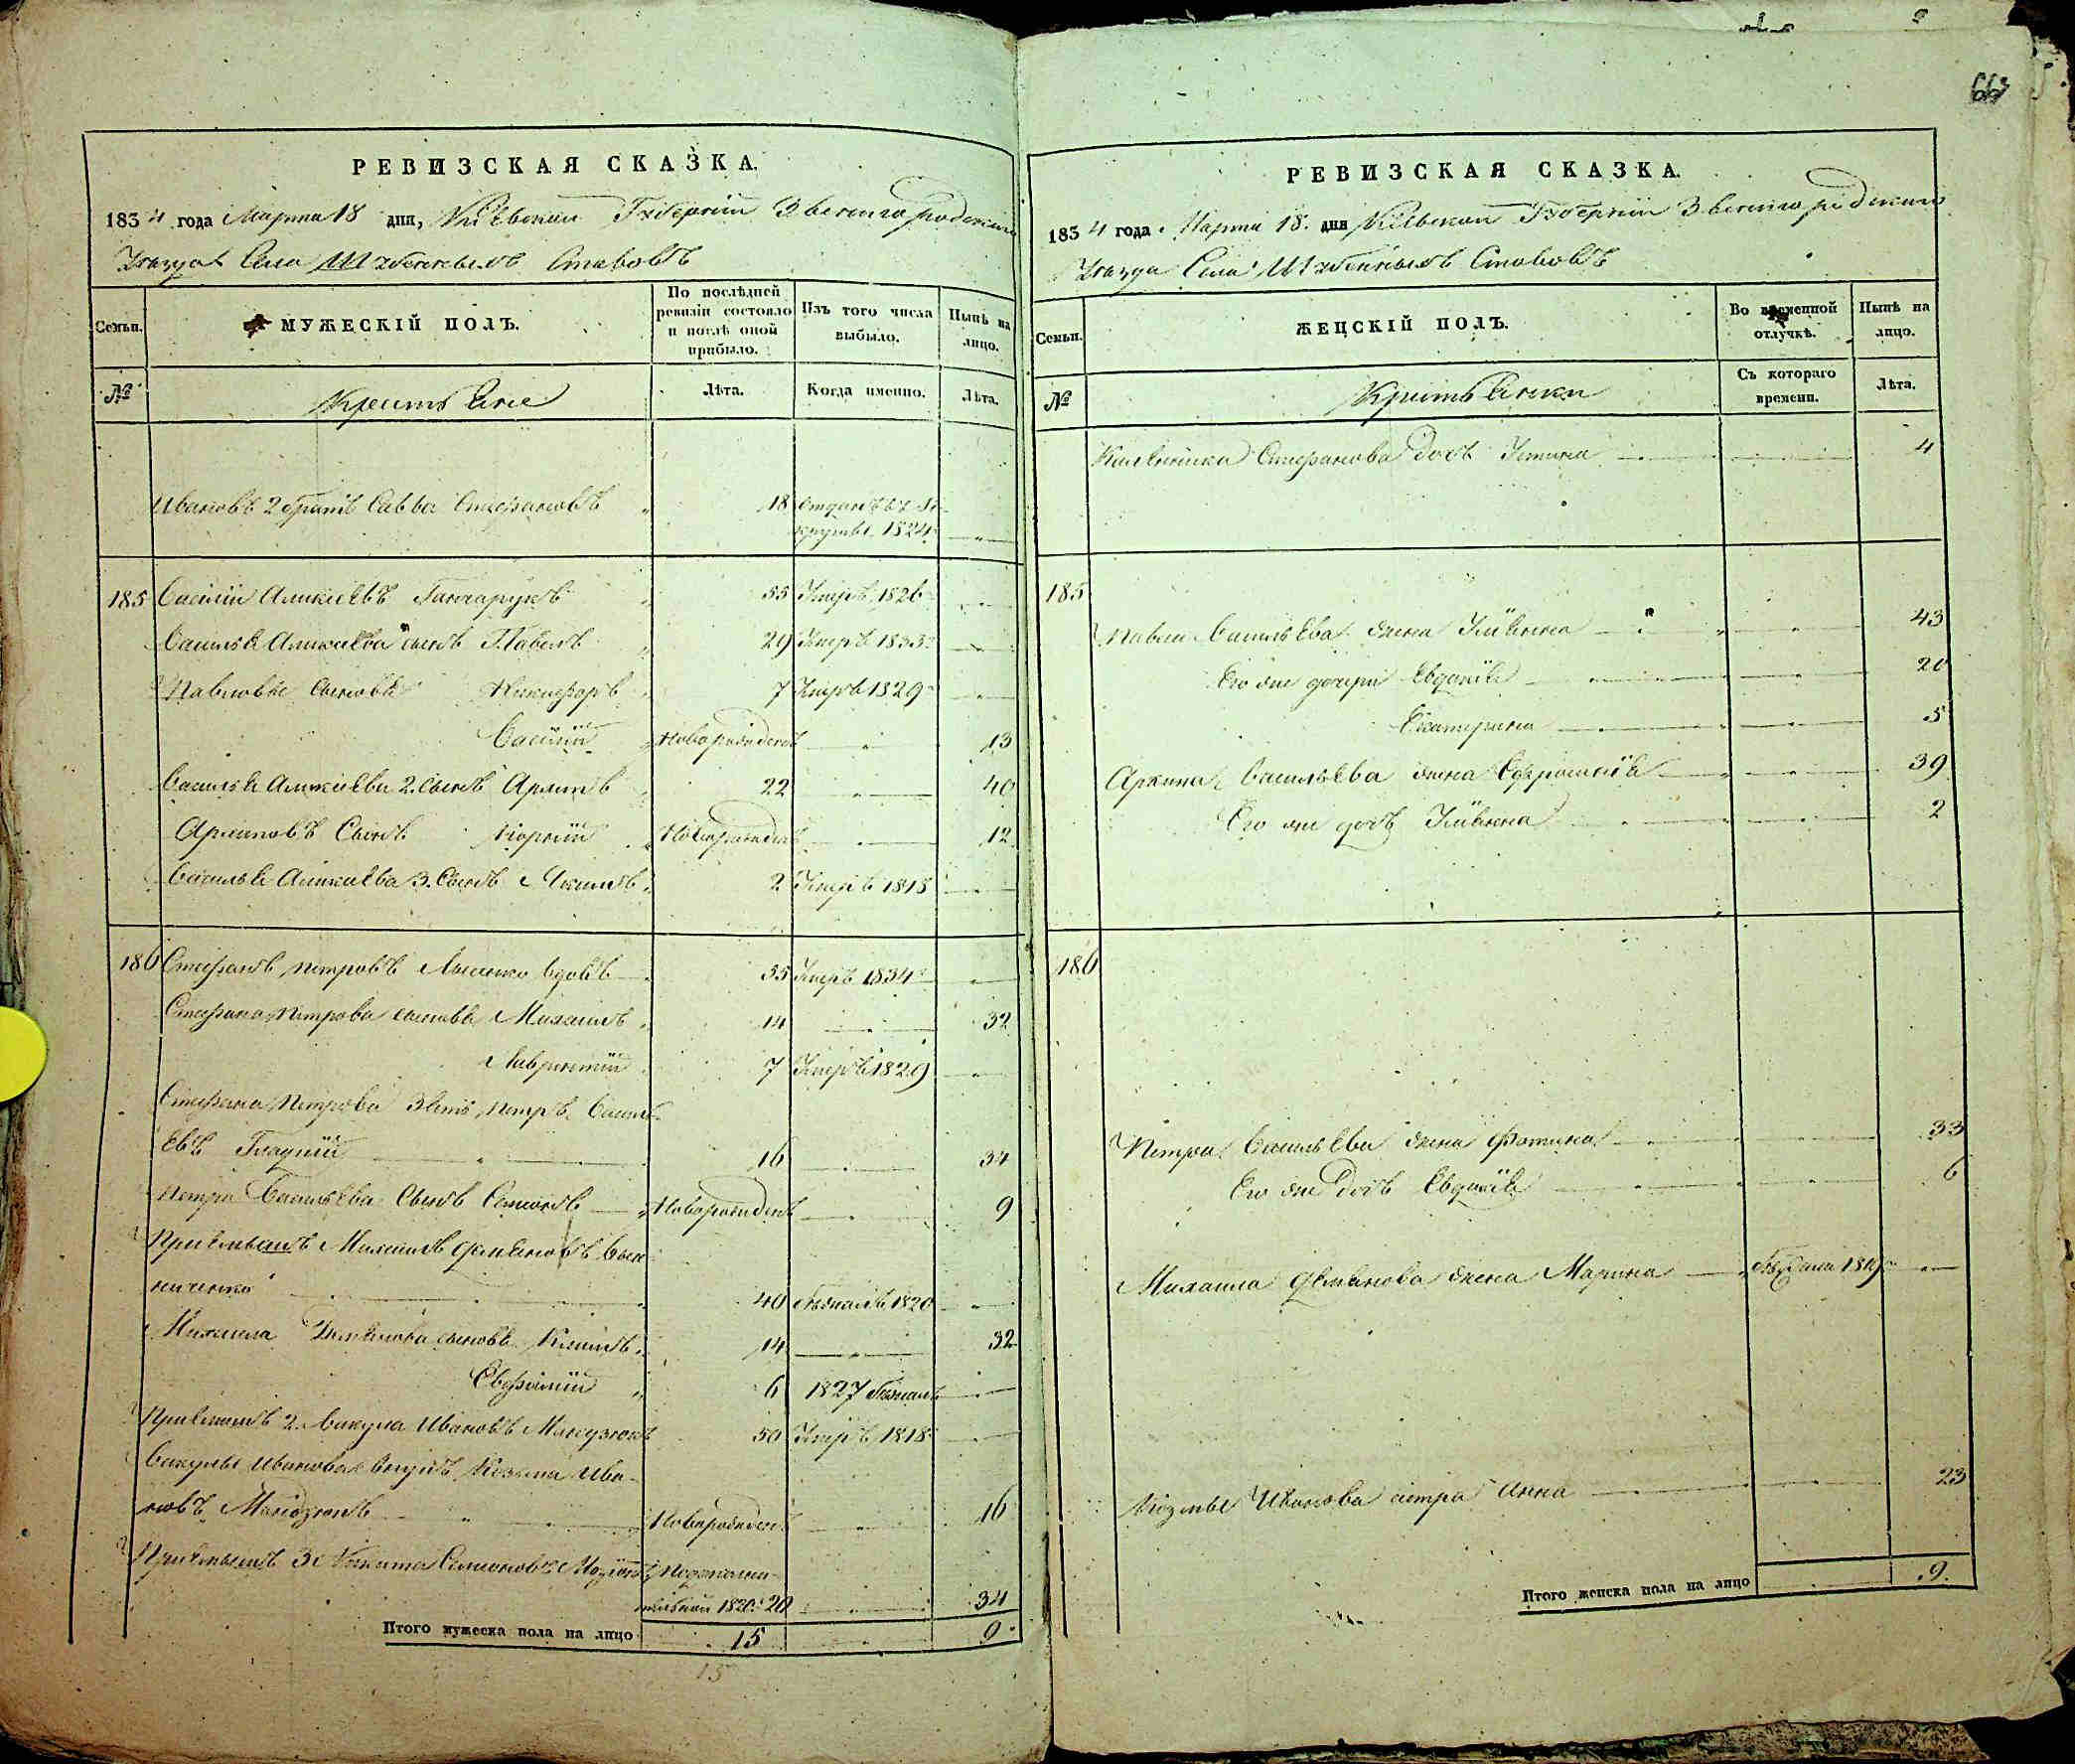 663
РЕВИЗСКАЯ СКАЗКА.
1834 года Марта 18 дня, Кіевской Губерніи Звенигородскаго
Уезда Села Шубенныхъ Ставовъ
Семьи.
МУЖЕСКІЙ ПОЛЪ.
По послѣдней ревизіи состояло и послѣ оной прибыло.
Изъ того числа выбыло.
Нынѣ на лицо.
№
Крестьяне
Лѣта.
Когда именно.
Лѣта.
Ивановъ 2 братъ Савва Стефановъ 18 отданъ въ
рекруты 1824
185 Василій Аликіевъ Гончарукъ 55 Умеръ 1826
Василья Аликіева сынъ Павелъ 29 Умеръ 1833
Павловы сыновья Никифоръ 7 Умеръ 1829
Василій Новорожденъ 13
Василья Аликіева 2. сынъ Архипъ 22 40
Архиповъ Сынъ Корній Новорожденъ 12
Василья Аликіева 3. Сынъ Якимъ 2 Умеръ 1818
186 Стефанъ Петровъ Лысенко вдовъ 55 Умеръ 1834
Стефана Петрова сыновья Михаилъ 14 32
Лаврентій 7 Умеръ 1829
Стефана Петрова Зять Петръ Василь-
евъ Гладкій 16 34
Петра Васильева Сынъ Семионъ Новорожденъ 9
Пріемышъ Михаилъ Демьяновъ
ниченко 40 бѣжалъ 1820
Михаила Демьянова сыновья Климъ 14 32
Евфимій 6 1827 бѣжалъ
Пріемышъ 2. Вакула Ивановъ 50 Умеръ 1818
Вакулы Иванова внукъ Козьма Ива-
новъ Новорожденъ 16
Пріемышъ 3й Никита Семионовъ
1820. 20 34
Итого мужеска пола на лицо 15 9
15
РЕВИЗСКАЯ СКАЗКА.
1834 года Марта 18. дня Кіевской Губерніи Звенигородскаго
Уезда Села Шубенныхъ Ставовъ
Семьи.
ЖЕНСКІЙ ПОЛЪ.
Во временной отлучкѣ.
Нынѣ на лицо.
№
Крестьянки
Съ котораго времени.
Лѣта.
Стефанова дочь Устина 4
185
Павла Васильева жена Ульянна 43
Его же дочери Евдокія 20
Екатерина 5
Архипа Васильева жена Евфросинія 39
Его же дочь Ульянна 2
186
Петра Васильева жена Фотина 33
Его же дочь Евдокія 6
Михаила Демьянова жена Марина бѣжала 1819
Козьмы Иванова сестра Анна 23
Итого женска пола на лицо 9.